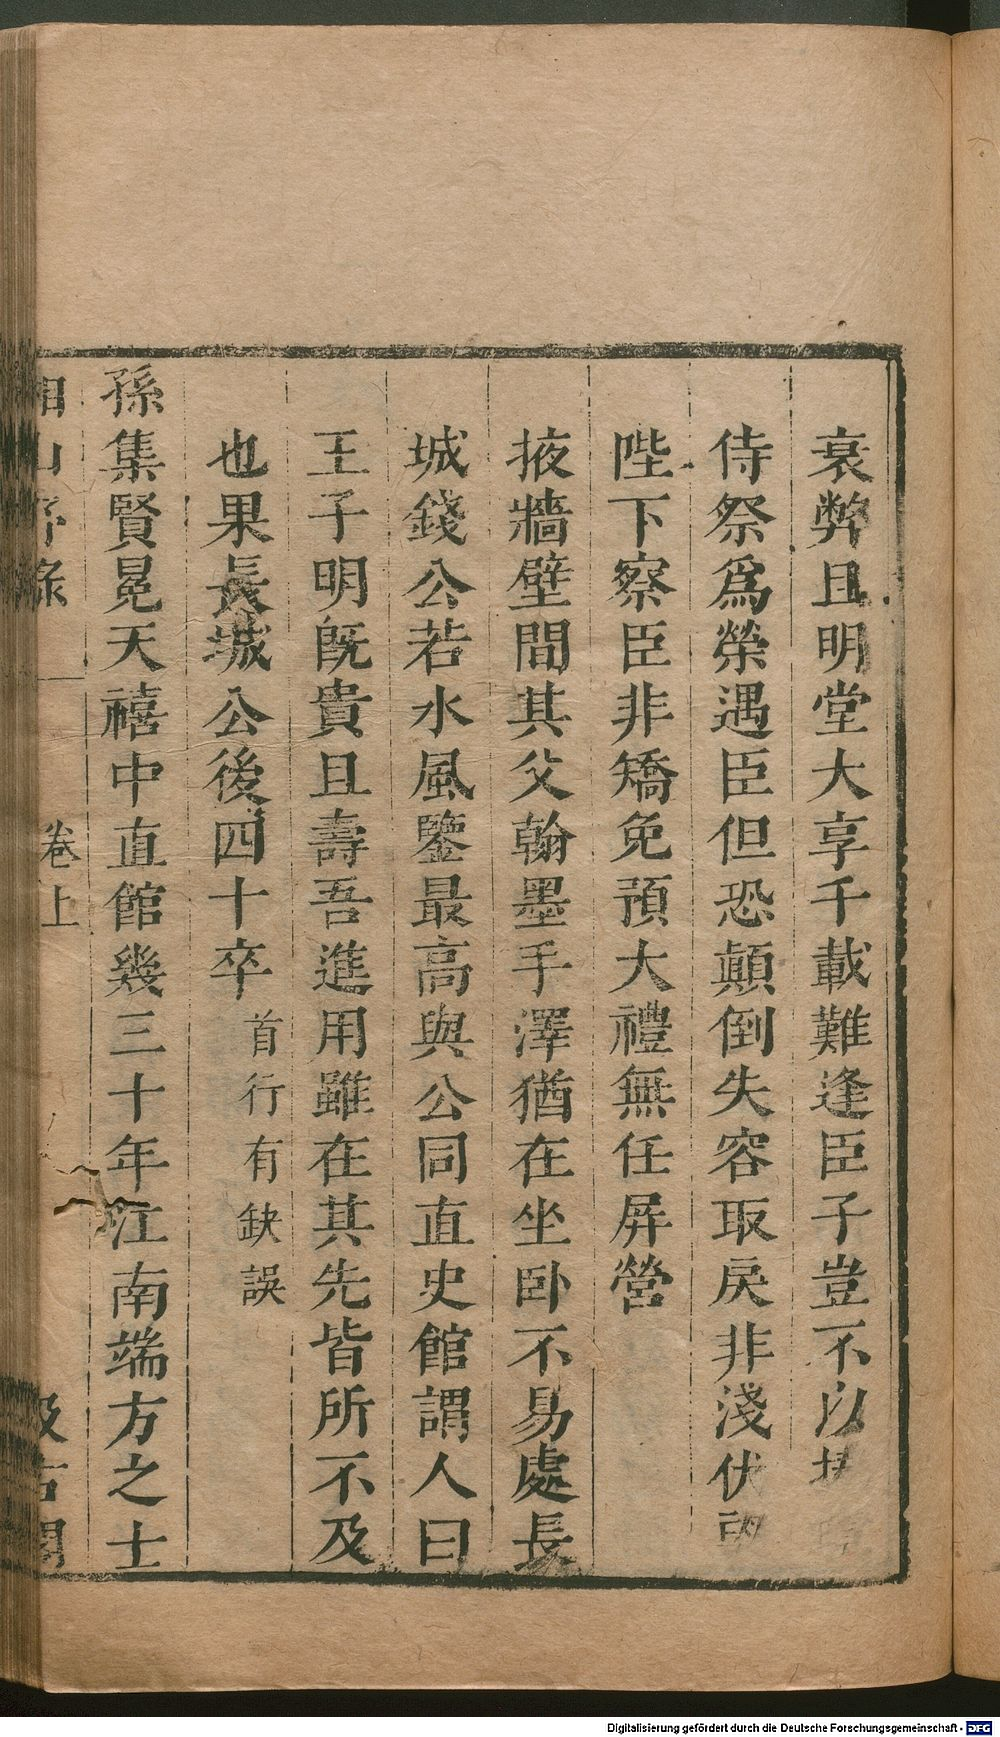 衰弊且明堂大享千載難逢臣子豈不以
侍祭爲榮遇臣但恐顛倒失容取戾非淺伏望
陛下察臣非矯免預大禮無任屏營
掖牆壁間其父翰墨手澤猶在坐卧不易處長
城錢公若水風鑒最高與公同直史館謂人曰
王子明旣貴且壽吾進用雖在其先皆所不及
也果長城公後四十卒首行有缺誤
孫集賢冕天禧中直館幾三十年江南端方之士
湘山野錄 卷上 汲古閣
Digitalisierung gefördert durch die Deutsche Forschungsgemeinschaft - DFG